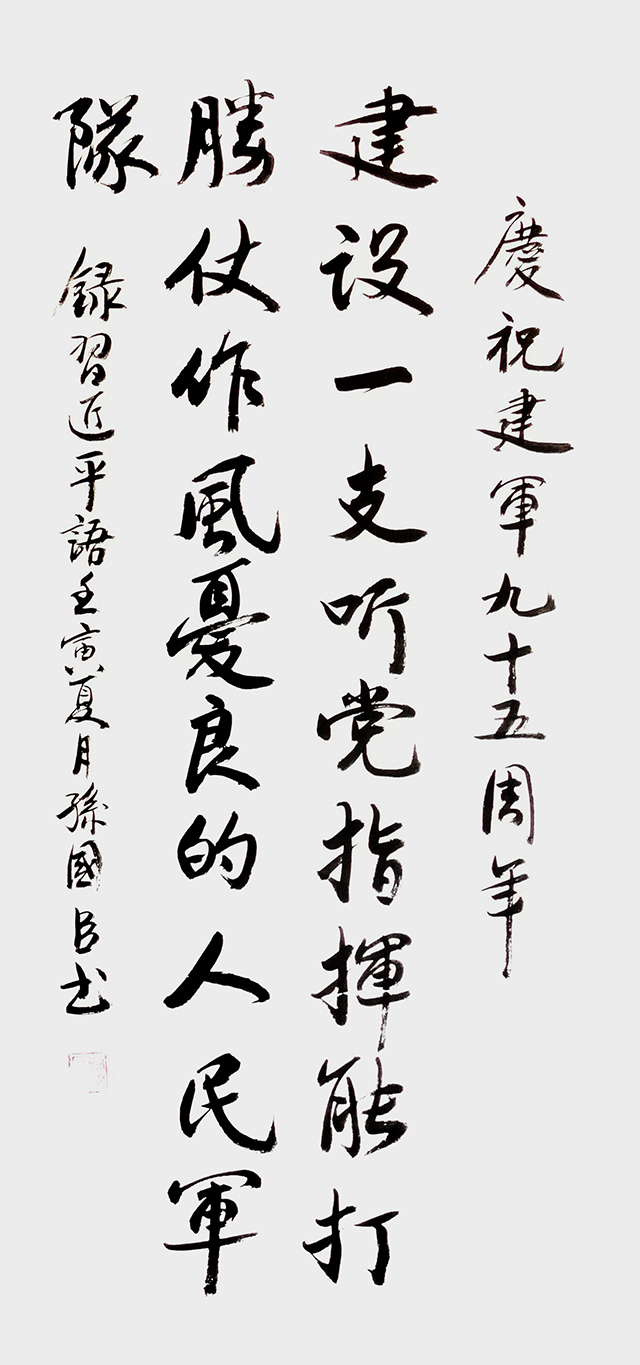 慶祝建軍九十五周年
建设一支听党指揮能打
勝仗作風憂良的人民軍
隊 録習近平語壬寅夏月孫國臣书